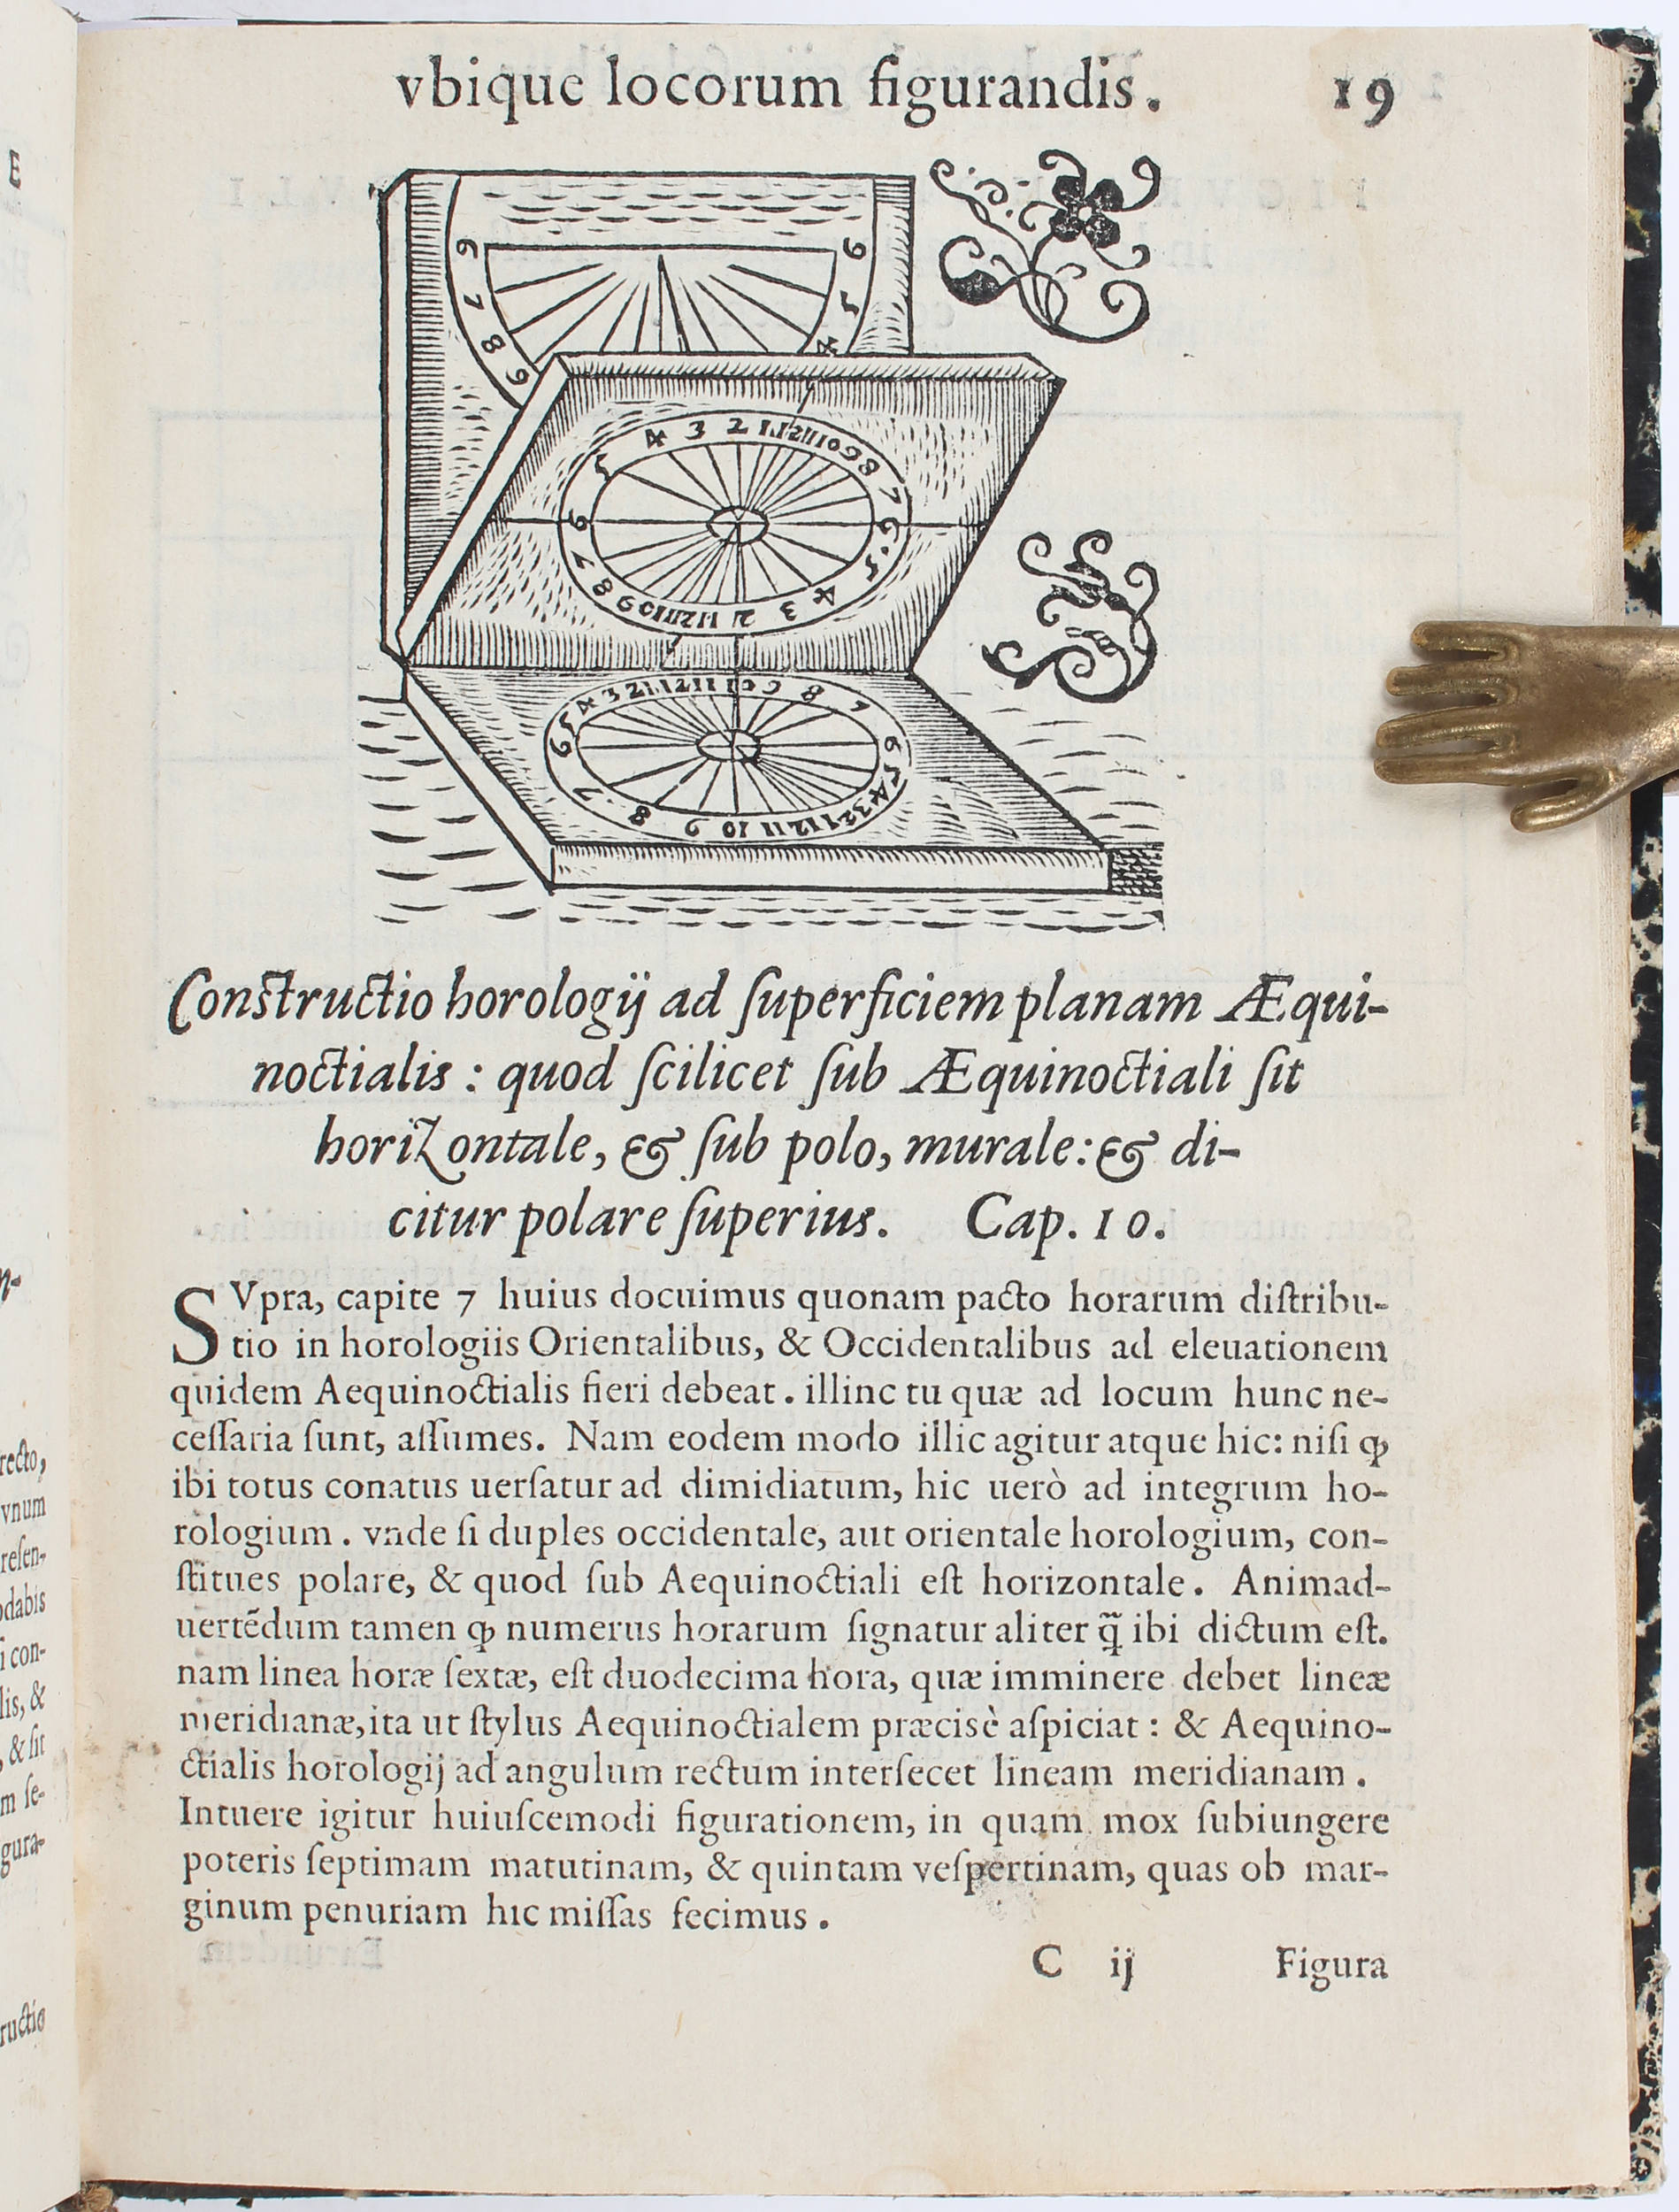 vbique locorum figurandis. 19
6 6
7 5
8 4
9
4 3 2 1 12 11 10 9 8
5 7
6 6
7 5
8 9 10 11 12 1 2 3 4
5 4 3 2 1 12 11 10 9 8 7
6 6
7 8 9 10 11 12 1 2 3 4 5
Constructio horologij ad ſuperficiem planam Æqui-
noctialis : quod ſcilicet ſub Æquinoctiali ſit
horizontale, & ſub polo, murale: & di-
citur polare ſuperius. Cap. 10.
SVpra, capite 7 huius docuimus quonam pacto horarum diſtribu-
tio in horologiis Orientalibus, & Occidentalibus ad eleuationem
quidem Aequinoctialis fieri debeat. illinc tu quæ ad locum hunc ne-
ceſſaria ſunt, aſſumes. Nam eodem modo illic agitur atque hic: niſi ꝙ
ibi totus conatus uerſatur ad dimidiatum, hic uerò ad integrum ho-
rologium. vnde ſi duples occidentale, aut orientale horologium, con-
ſtitues polare, & quod ſub Aequinoctiali eſt horizontale. Animad-
uertẽdum tamen ꝙ numerus horarum ſignatur aliter q̃ ibi dictum eſt.
nam linea horæ ſextæ, eſt duodecima hora, quæ imminere debet lineæ
meridianæ, ita ut ſtylus Aequinoctialem præcisè aſpiciat : & Aequino-
ctialis horologij ad angulum rectum interſecet lineam meridianam.
Intuere igitur huiuſcemodi figurationem, in quam mox ſubiungere
poteris ſeptimam matutinam, & quintam veſpertinam, quas ob mar-
ginum penuriam hic miſſas fecimus.
C ij Figura
E
recto,
vnum
reſen-
odabis
i con-
lis, &
, & ſit
m ſe-
gura-
ructio